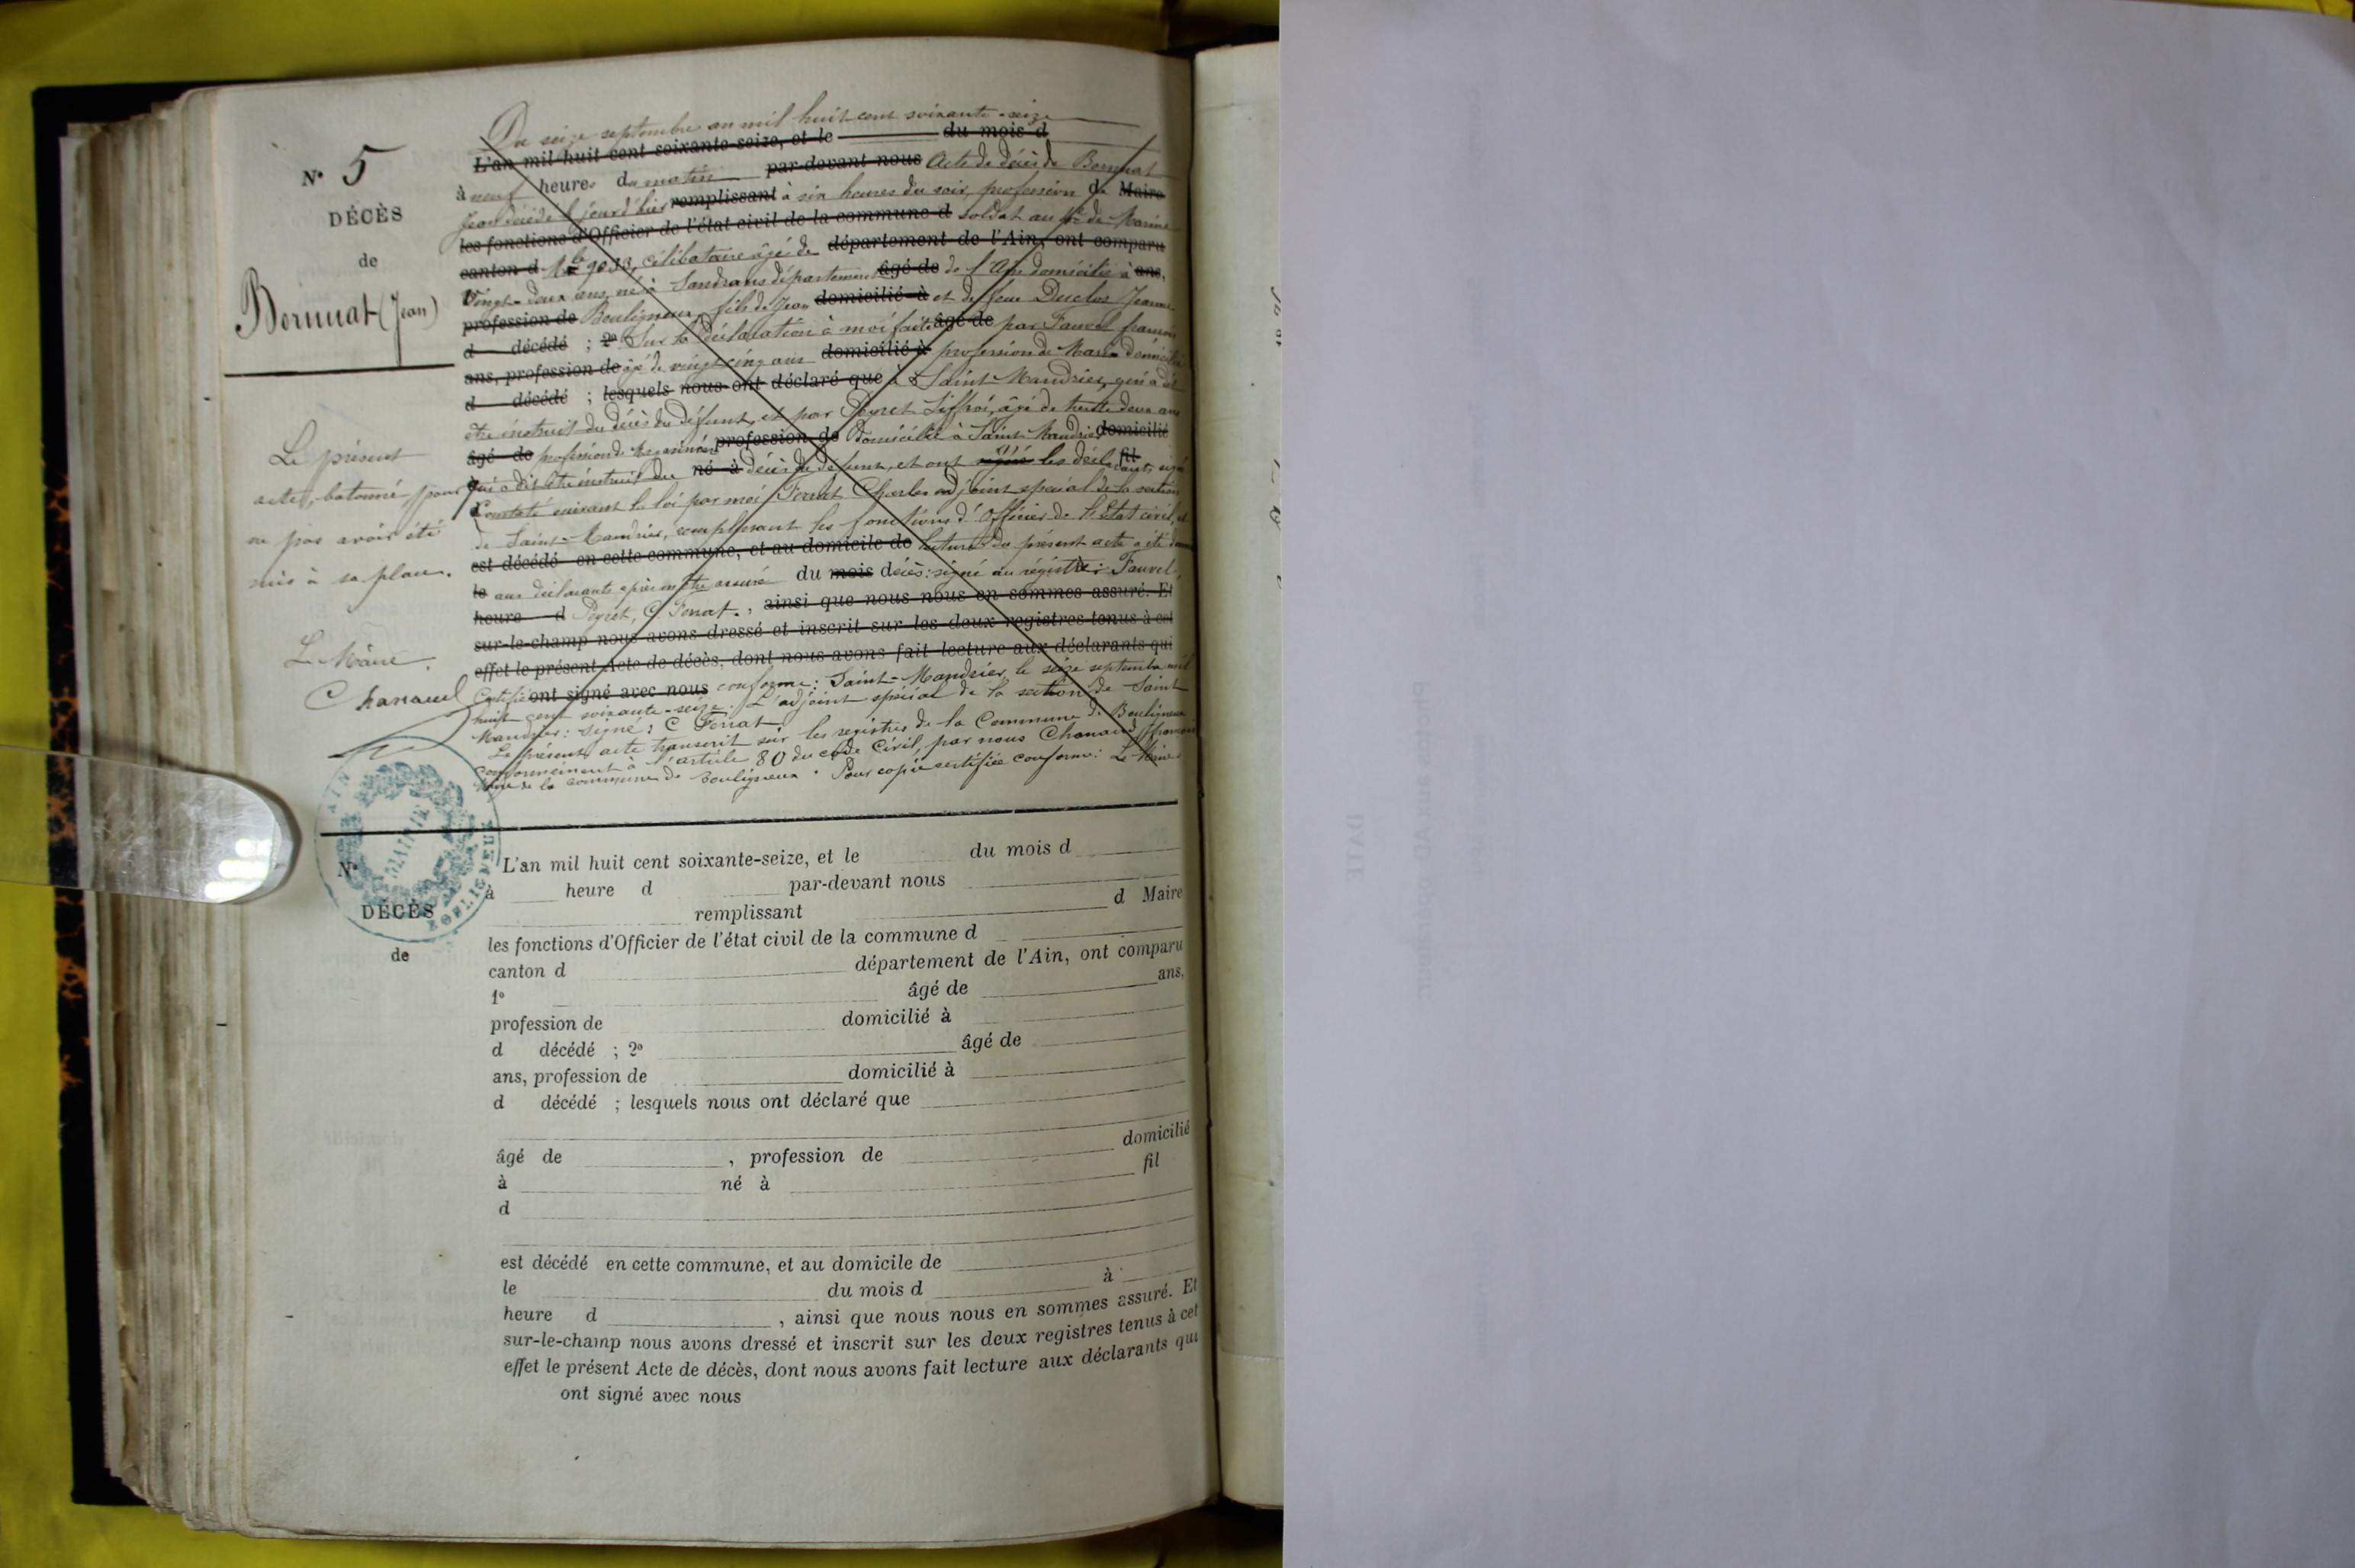 N° 5
DÉCÈS
de
Bernuat (Jean)
Le présent
acte, batonné pour
ne pas avoir été
mis à sa place.
Le Maire,
Chanaud
Du seize septembre an mil huit cent soixante-seize
L'an mil huit cent soixante-seize, et le du mois d
à neuf heures du matin par-devant nous Acte de décès de Bernuat
Jean décédé le jour d'hier remplissant à six heures du soir, profession de Maire
les fonctions d'Officier de l'état civil de la commune d soldat au de Marine
canton d célibataire âgé de département de l'Ain, ont comparu
Vingt-deux ans, né à Sandrans département âgé de de l'Ain domicilié à ans,
profession de Bouligneux, fils de Jean domicilié à et de feue Duclos Jeanne
d décédé ; 2° Sur la déclaration à moi faite âgé de par Fauvel françois
ans, profession de âgé de vingt cinq ans domicilié à profession de Marin domicilié
d décédé ; lesquels nous ont déclaré que à Saint-Mandrier, qui a dit
être instruit du décès du défunt, et par Peyret Siffroi, âgé de trente deux ans
âgé de profession de Magasinier profession de domicilié à Saint-Mandrier domicilié
qui a dit être instruit du né à décès du défunt, et ont signé les déclarants, fil
Constaté suivant la loi par moi Ferrat Charles adjoint spécial de la section
de Saint-Mandrier, remplissant les fonctions d'Officier de l'Etat civil, et
est décédé en cette commune, et au domicile de lecture du présent acte a été donnée
le aux déclarants après m'être assuré du mois décès: signé au régistre: Fauvel,
heure d Peyret, C. Ferrat. , ainsi que nous nous en sommes assuré. Et
sur-le-champ nous avons dressé et inscrit sur les deux registres tenus à cet
effet le présent Acte de décès, dont nous avons fait lecture aux déclarants qui
Certifié ont signé avec nous conforme: Saint-Mandrier, le seize septembre mil
huit cent soixante-seize. L'adjoint spécial de la section de Saint
Mandrier: signé: C Ferrat.
Le présent acte transcrit sur les registres de la Commune de Bouligneux
conformément à l'article 80 du code Civil, par nous Chanaud françois
Maire de la commune de Bouligneux. Pour copie certifiée conforme: Le Maire
MAIRIE
AIN
BOULIGNEUX
N°
DÉCÈS
de
L'an mil huit cent soixante-seize, et le du mois d
à heure d par-devant nous
remplissant d Maire
les fonctions d'Officier de l'état civil de la commune d
canton d département de l'Ain, ont comparu
1° âgé de ans,
profession de domicilié à
d décédé ; 2° âgé de
ans, profession de domicilié à
d décédé ; lesquels nous ont déclaré que
âgé de , profession de domicilié
à né à fil
d
est décédé en cette commune, et au domicile de
le du mois d à
heure d , ainsi que nous nous en sommes assuré. Et
sur-le-champ nous avons dressé et inscrit sur les deux registres tenus à cet
effet le présent Acte de décès, dont nous avons fait lecture aux déclarants qui
ont signé avec nous